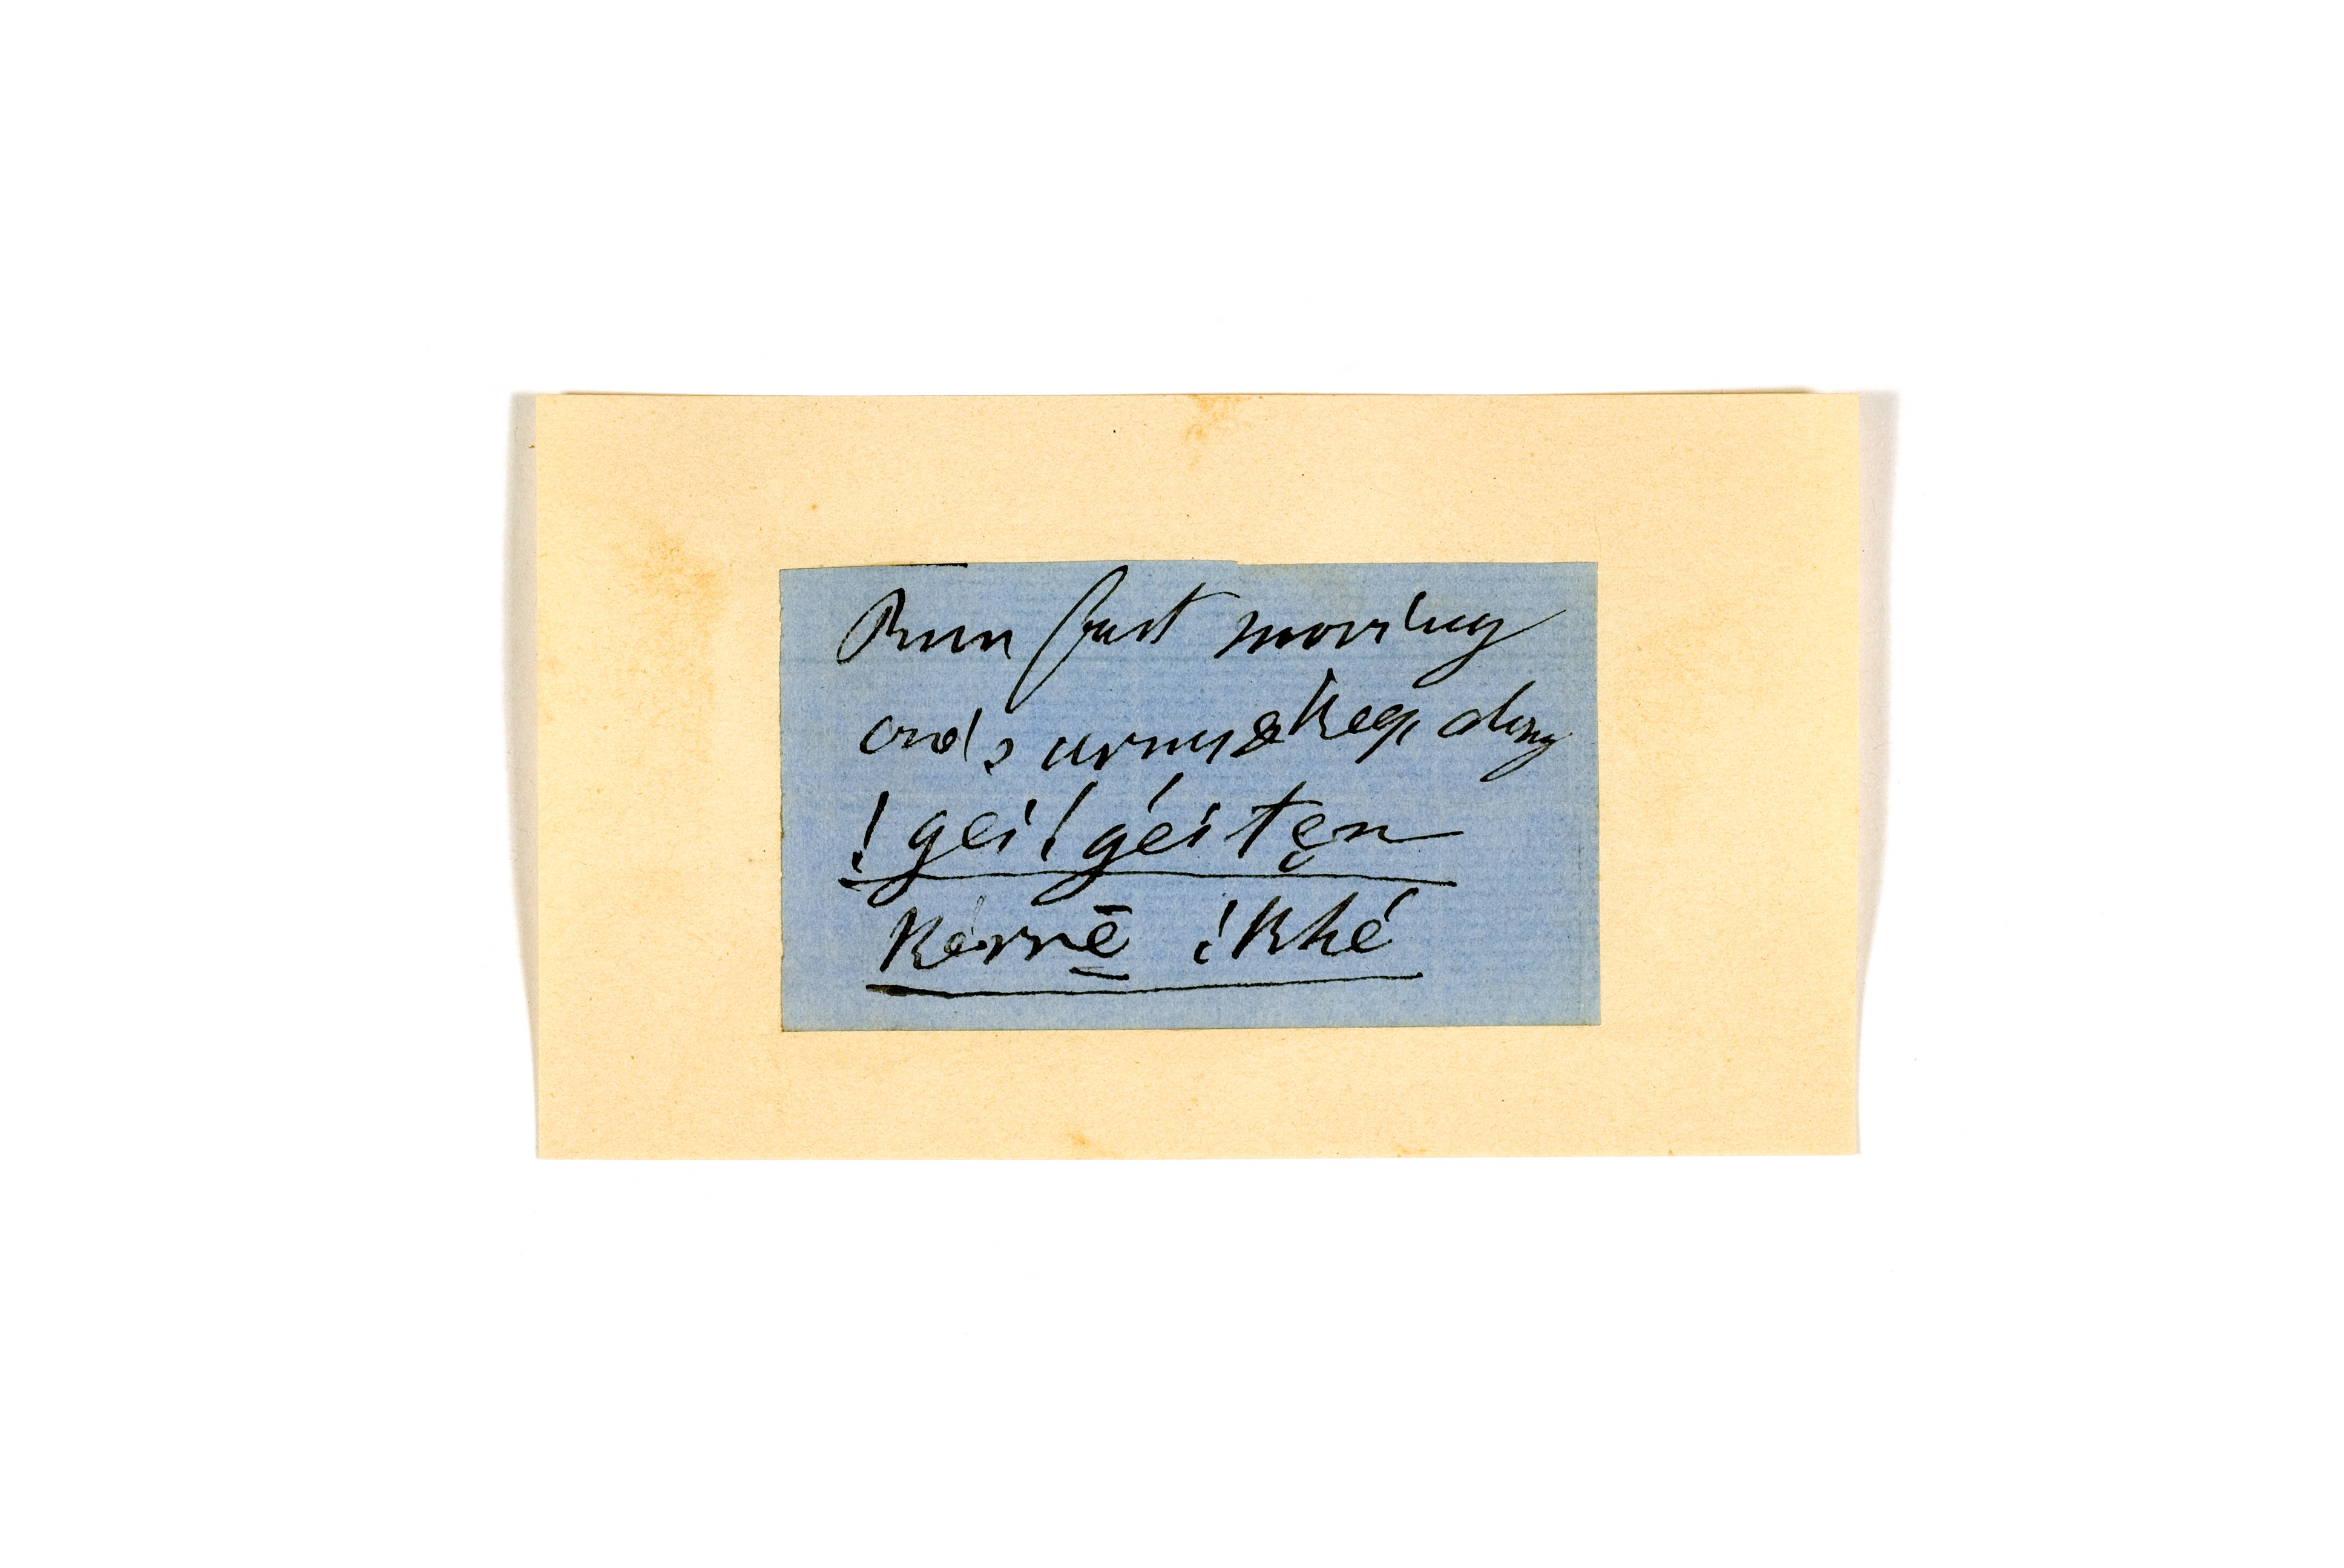 Run fast moving
one's arms & keep along
!gei !géi tẹn
Kérrē̱ !khé